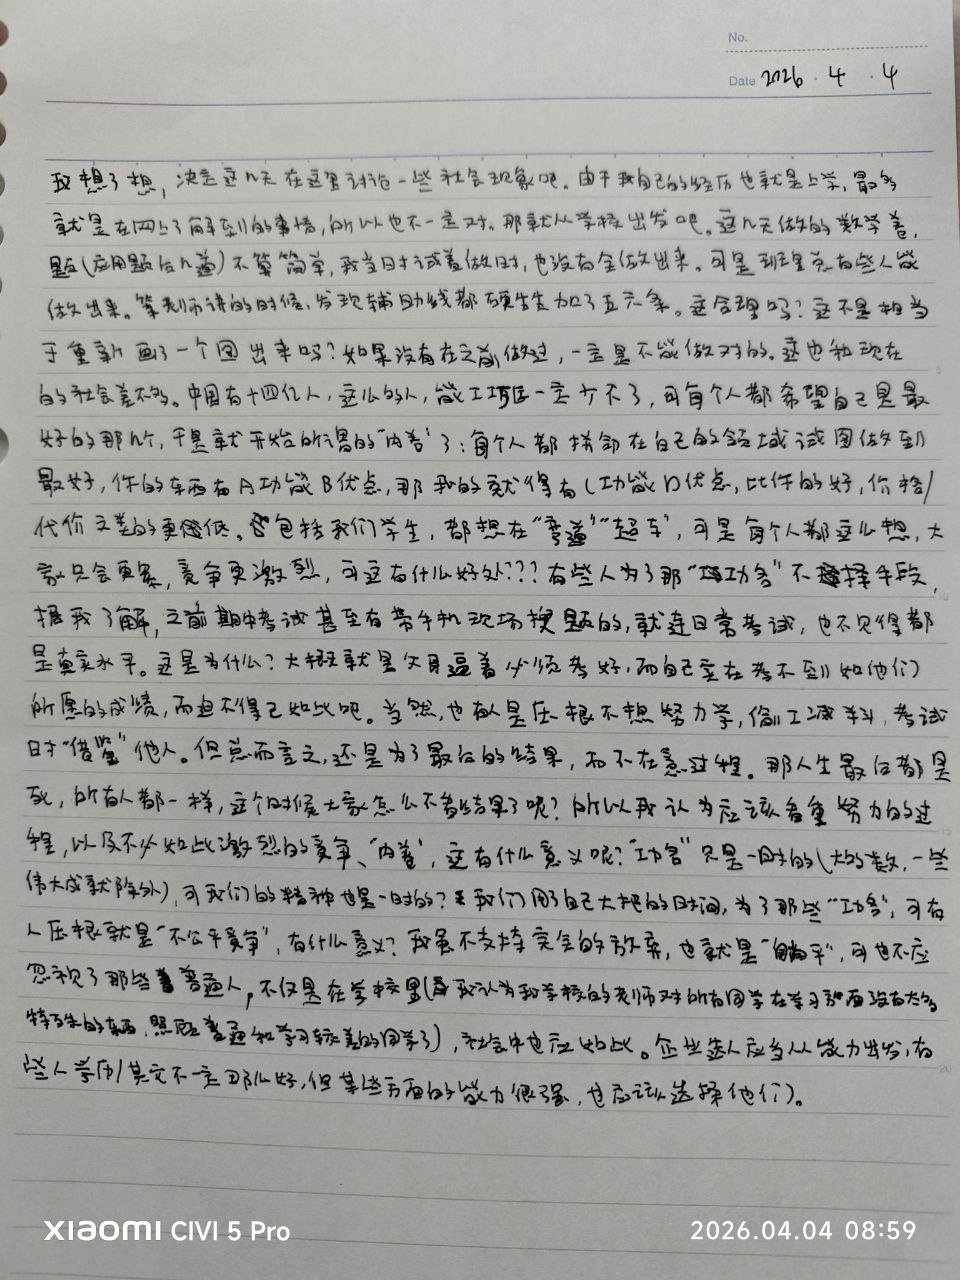 No.
Date 2026 · 4 · 4
我想了想，决定这几天在这里讨论一些社会现象吧。由于我自己的经历也就是上学，最多
就是在网上了解到的事情，所以也不一定对。那就从学校出发吧。这几天做的数学卷，
题（应用题后几道）不算简单，我当时试着做时，也没有全做出来。可是班里总有些人能
做出来。等老师讲的时候，发现辅助线都硬生生加了五六条。这合理吗？这不是相当
于重新画了一个图出来吗？如果没有在之前做过，一定是不能做对的。这也和现在
的社会差不多。中国有十四亿人，这么多人，能工巧匠一定少不了，可每个人都希望自己是最
好的那几个，于是就开始所谓的“内卷”了：每个人都拼命在自己的领域试图做到
最好，你的东西有A功能B优点，那我的就得有C功能D优点，比你的好，价格/
代价文差的更低。包括我们学生，都想在“弯道”“超车”，可是每个人都这么想，大
家只会更累，竞争更激烈，可这有什么好处？？？有些人为了那“功名”不择手段，
据我了解，之前期中考试甚至有带手机现场搜题的，就连日常考试，也不见得都
是真实水平。这是为什么？大概就是父母逼着必须考好，而自己实在考不到如他们
所愿的成绩，而迫不得已如此吧。当然，也有人是压根不想努力学，偷工减料，考试
时“借鉴”他人。但总而言之，还是为了最后的结果，而不在意过程。那人生最后都是
死，所有人都一样，这个时候大家怎么不看结果了呢？所以我认为应该看重努力的过
程，以及不必如此激烈的竞争、“内卷”，这有什么意义呢？“功名”只是一时的（大多数，一些
伟大成就除外），可我们的精神也是一时的？我们用了自己大把的时间，为了那些“功名”，可有
人压根就是“不公平竞争”，有什么意义？我虽不支持完全的放弃，也就是“躺平”，可也不应
忽视了那些普通人，不仅是在学校里（我认为我学校的老师对所有同学在学习方面没有太多
特殊的东西，照顾普通和学习较差的同学了），社会中也应如此。企业选人应当从能力出发，有
些人学历/其它不一定那么好，但某些方面的能力很强，也应该选择他们）。
XIAOMI CIVI 5 Pro
2026.04.04 08:59